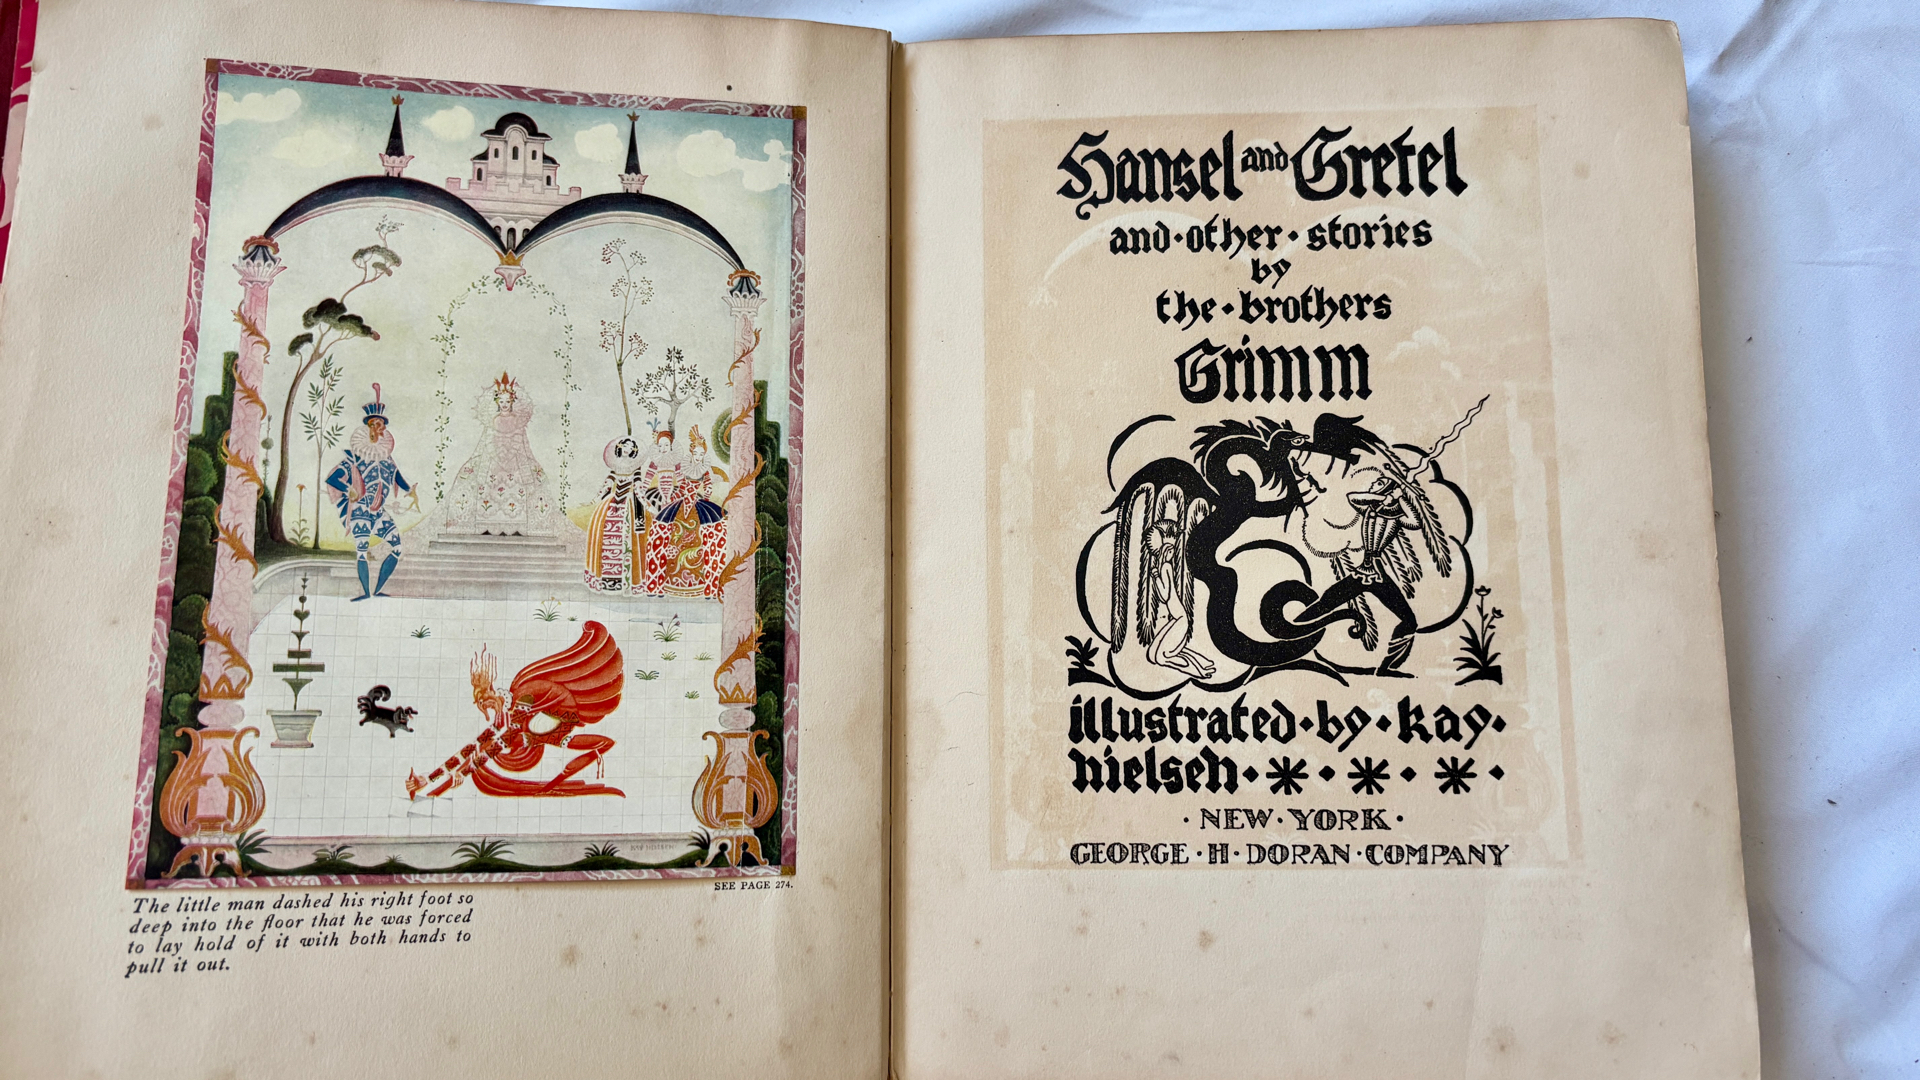 SEE PAGE 274.
The little man dashed his right foot so
deep into the floor that he was forced
to lay hold of it with both hands to
pull it out.
Hansel and Gretel
and·other·stories
by
the·brothers
Grimm
illustrated·by·kay·
nielsen·*·*·*·
·NEW·YORK·
GEORGE·H·DORAN·COMPANY